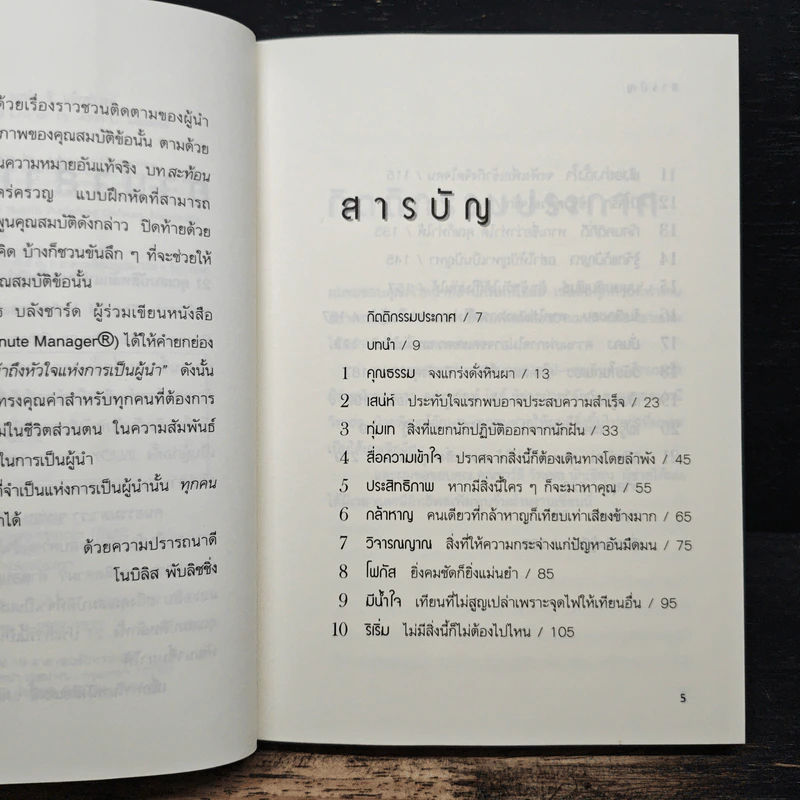 ด้วยเรื่องราวชวนติดตามของผู้นำ
ภาพของคุณสมบัติข้อนั้น ตามด้วย
นความหมายอันแท้จริง บทสะท้อน
ใคร่ครวญ แบบฝึกหัดที่สามารถ
พูนคุณสมบัติดังกล่าว ปิดท้ายด้วย
คิด บ้างก็ชวนขันลึก ๆ ที่จะช่วยให้
คุณสมบัติข้อนั้น
บลังชาร์ด ผู้ร่วมเขียนหนังสือ
nute Manager®) ได้ให้คำยกย่อง
ถึงหัวใจแห่งการเป็นผู้นำ" ดังนั้น
ทรงคุณค่าสำหรับทุกคนที่ต้องการ
ในชีวิตส่วนตน ในความสัมพันธ์
ในการเป็นผู้นำ
ที่จำเป็นแห่งการเป็นผู้นำนั้น ทุกคน
ได้
ด้วยความปรารถนาดี
โนบิลิส พับลิชชิ่ง
สารบัญ
กิตติกรรมประกาศ / 7
บทนำ / 9
1 คุณธรรม จงแกร่งดั่งหินผา / 13
2 เสน่ห์ ประทับใจแรกพบอาจประสบความสำเร็จ / 23
3 ทุ่มเท สิ่งที่แยกนักปฏิบัติออกจากนักฝัน / 33
4 สื่อความเข้าใจ ปราศจากสิ่งนี้ก็ต้องเดินทางโดยลำพัง / 45
5 ประสิทธิภาพ หากมีสิ่งนี้ใคร ๆ ก็จะมาหาคุณ / 55
6 กล้าหาญ คนเดียวที่กล้าหาญก็เทียบเท่าเสียงข้างมาก / 65
7 วิจารณญาณ สิ่งที่ให้ความกระจ่างแก่ปัญหาอันมืดมน / 75
8 โฟกัส ยิ่งคมชัดก็ยิ่งแม่นยำ / 85
9 มีน้ำใจ เทียนที่ไม่สูญเปล่าเพราะจุดไฟให้เทียนอื่น / 95
10 ริเริ่ม ไม่มีสิ่งนี้ก็ไม่ต้องไปไหน / 105
5